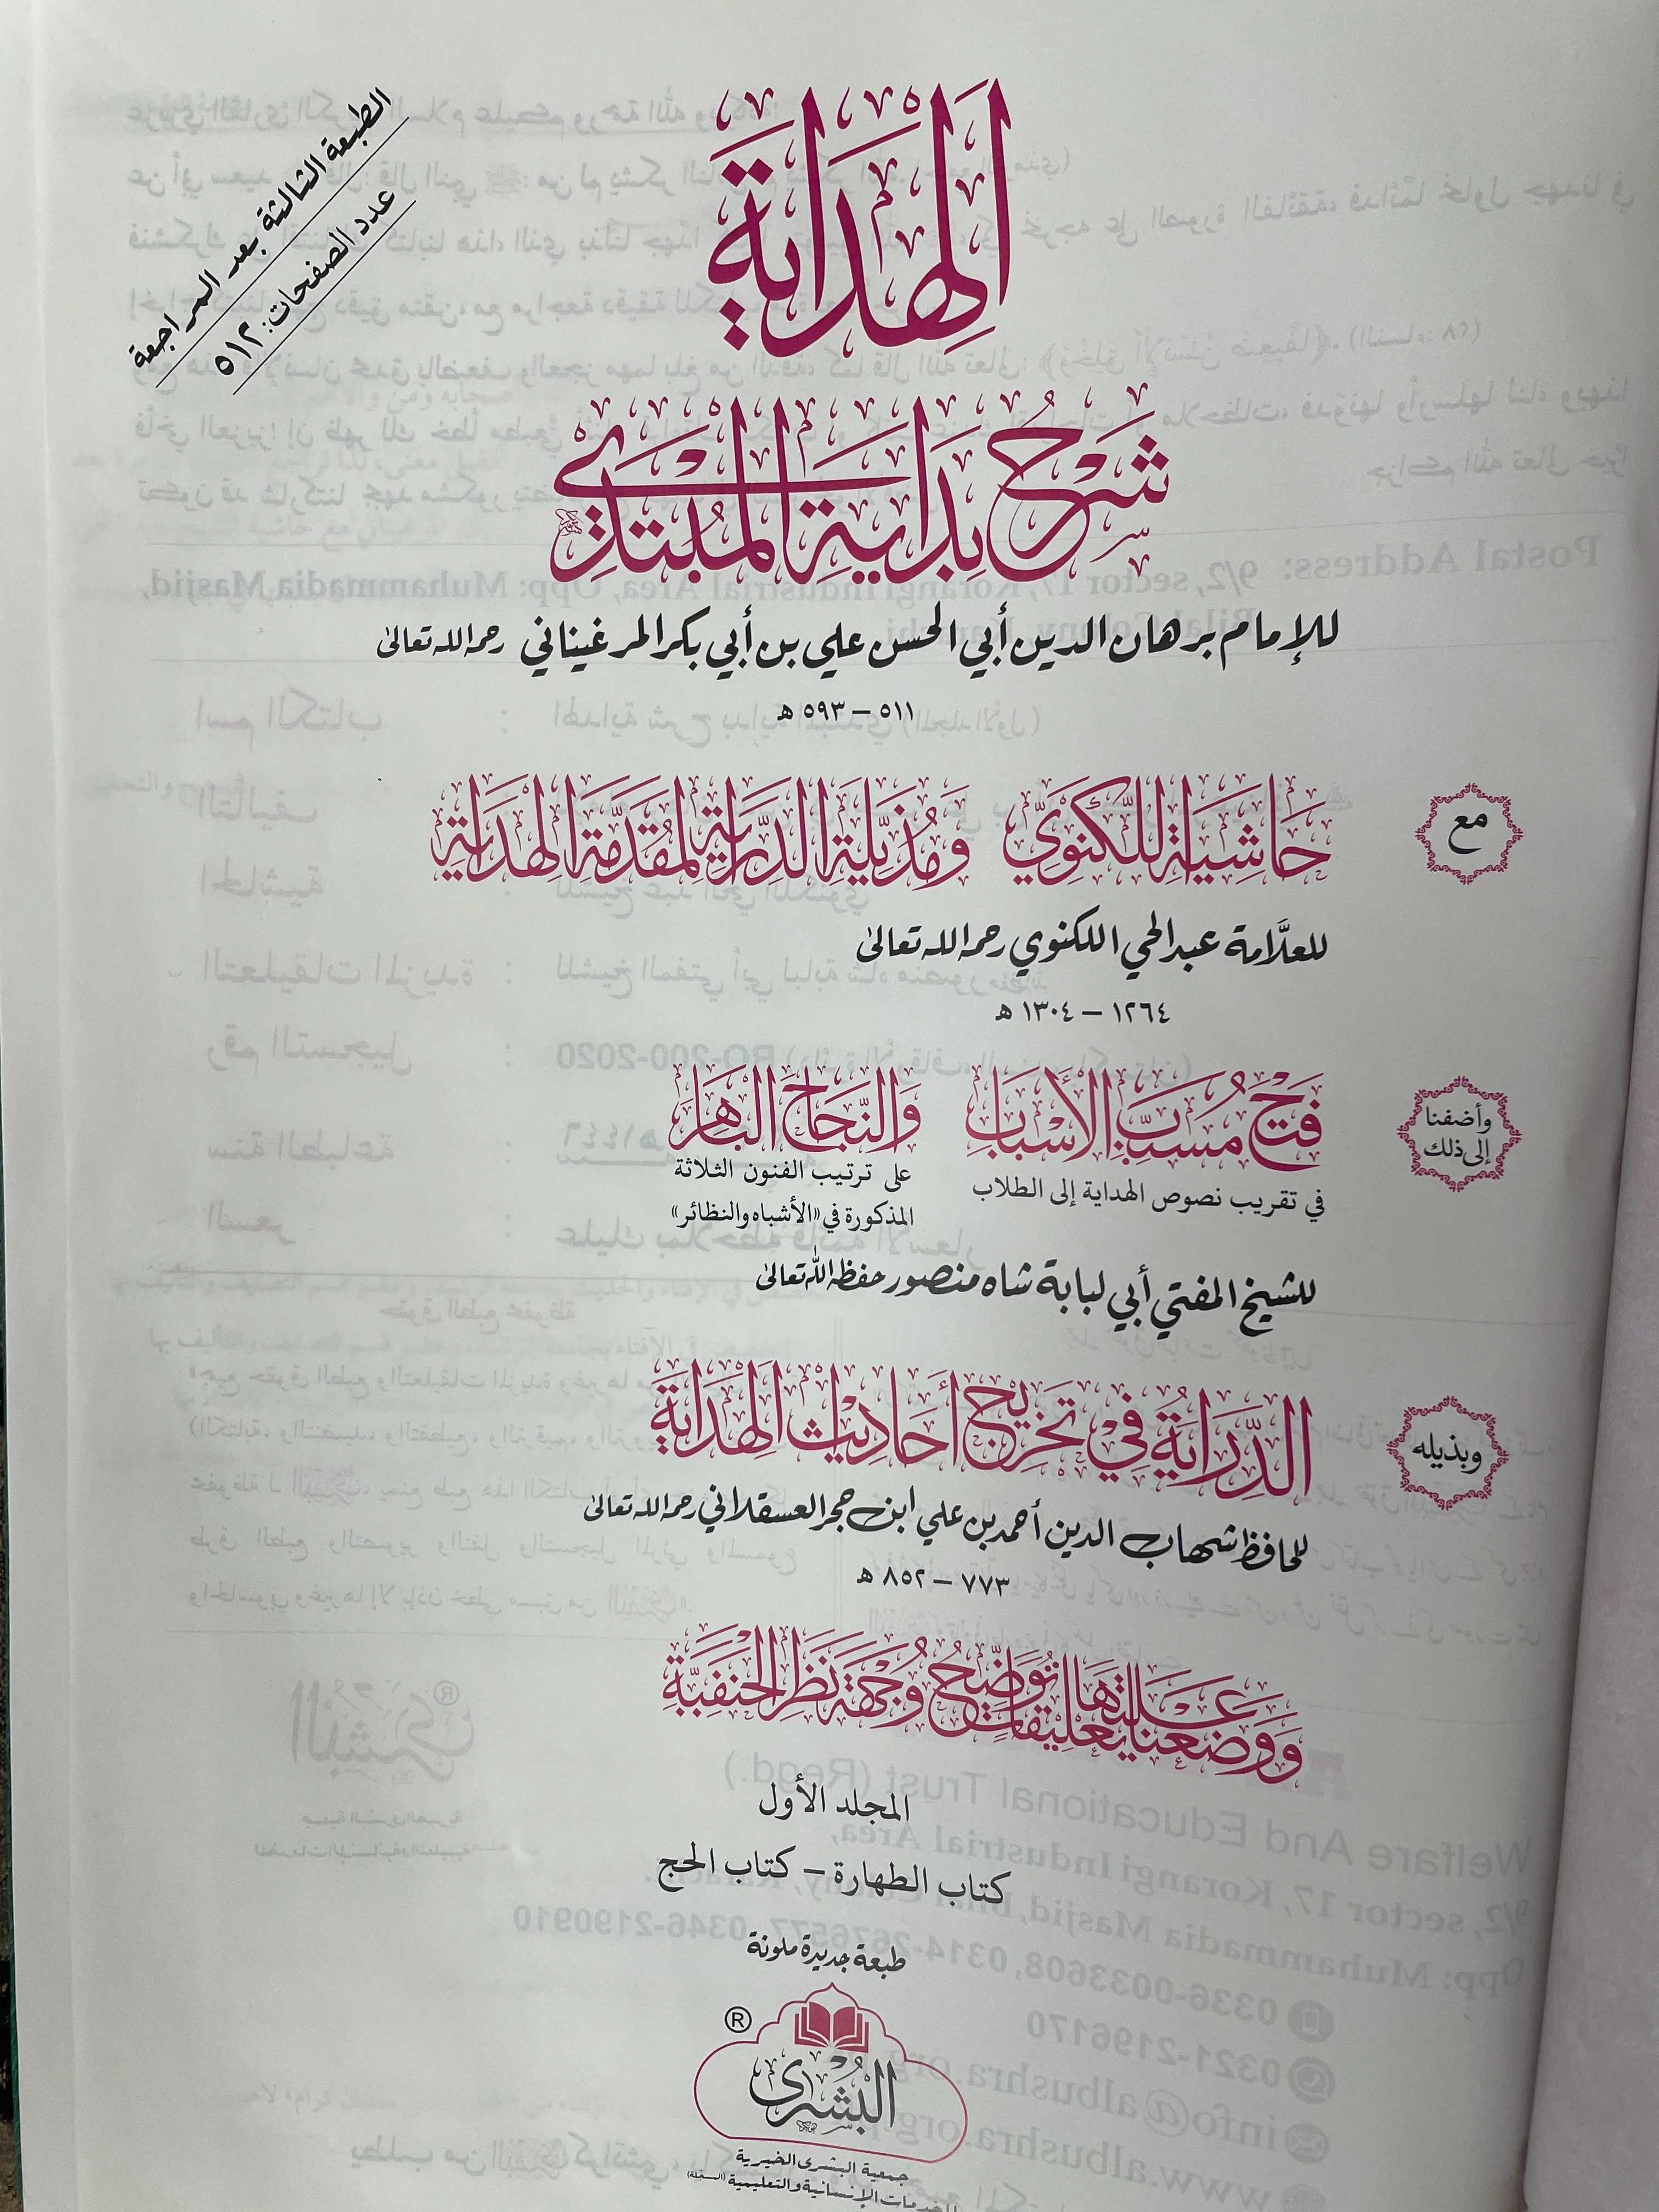 الطبعة الثالثة بعد المراجعة
عدد الصفحات: ٥١٢
الهداية
شرح بداية المبتدي
للإمام برهان الدين أبي الحسن علي بن أبي بكر المرغيناني رحمه الله تعالى
٥١١ – ٥٩٣ هـ
مع
حاشية اللكنوي ومذيلة الدراية لمقدمة الهداية
للعلَّامة عبد الحي اللكنوي رحمه الله تعالى
١٢٦٤ – ١٣٠٤ هـ
وأضفنا
إلى ذلك
فتح مسبب الأسباب
في تقريب نصوص الهداية إلى الطلاب
والنجاح الباهر
على ترتيب الفنون الثلاثة
المذكورة في «الأشباه والنظائر»
للشيخ المفتي أبي لبابة شاه منصور حفظه الله تعالى
وبذيله
الدِّراية في تخريج أحاديث الهداية
للحافظ شهاب الدين أحمد بن علي ابن حجر العسقلاني رحمه الله تعالى
٧٧٣ – ٨٥٢ هـ
ووضعنا عليها تعليقات توضح وجهة نظر الحنفية
المجلد الأول
كتاب الطهارة – كتاب الحج
طبعة جديدة ملونة
®
البشرى
جمعية البشرى الخيرية
للخدمات الإنسانية والتعليمية (المسجلة)